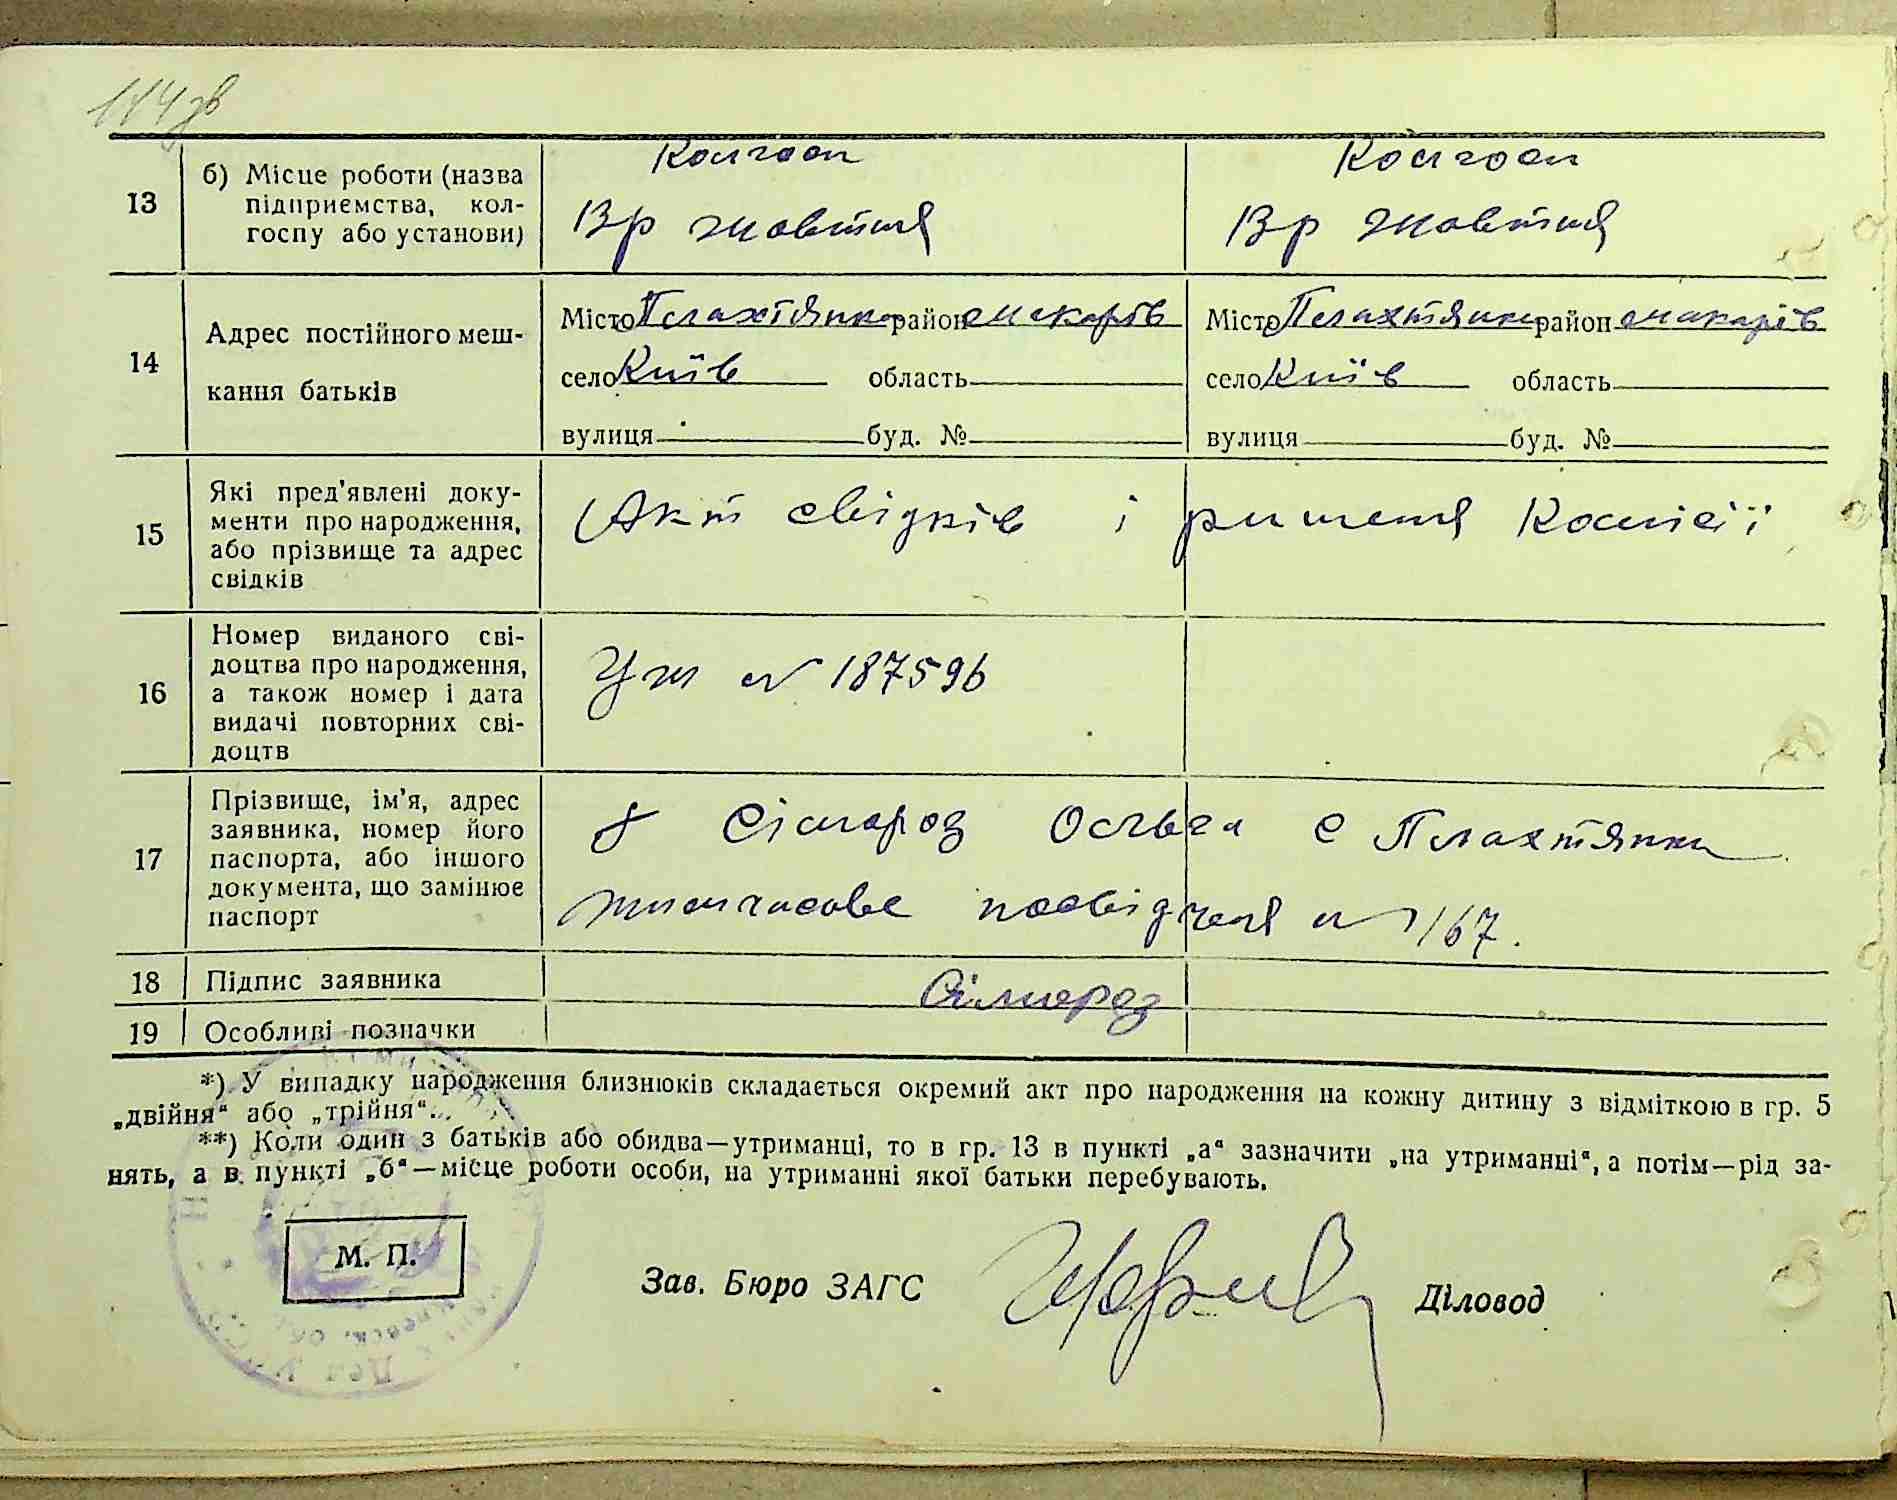 144зв
13 б) Місце роботи (назва підприємства, кол-госпу або установи)
Колгосп Колгосп
Вр жовтня Вр жовтня
14 Адрес постійного меш-кання батьків
Місто Плахтянка район Макарів Місто Плахтянка район Макарів
село Київ область село Київ область
вулиця буд. № вулиця буд. №
15 Які пред'явлені доку-
менти про народження,
або прізвище та адрес
свідків
Акт свідків і ришення Комісії
16 Номер виданого сві-
доцтва про народження,
а також номер і дата
видачі повторних сві-
доцтв
Уж N 187596
17 Прізвище, ім'я, адрес
заявника, номер його
паспорта, або іншого
документа, що замінює
паспорт
Сільмороз Ольга с Плахтянка
тимчасове посвідченя N 167.
18 Підпис заявника
19 Особливі позначки
*) У випадку народження близнюків складається окремий акт про народження на кожну дитину з відміткою в гр. 5
„двійня“ або „трійня“.
**) Коли один з батьків або обидва—утриманці, то в гр. 13 в пункті „а“ зазначити „на утриманні“, а потім—рід за-
нять, а в пункті „б“—місце роботи особи, на утриманні якої батьки перебувають.
М. П.
Зав. Бюро ЗАГС Діловод